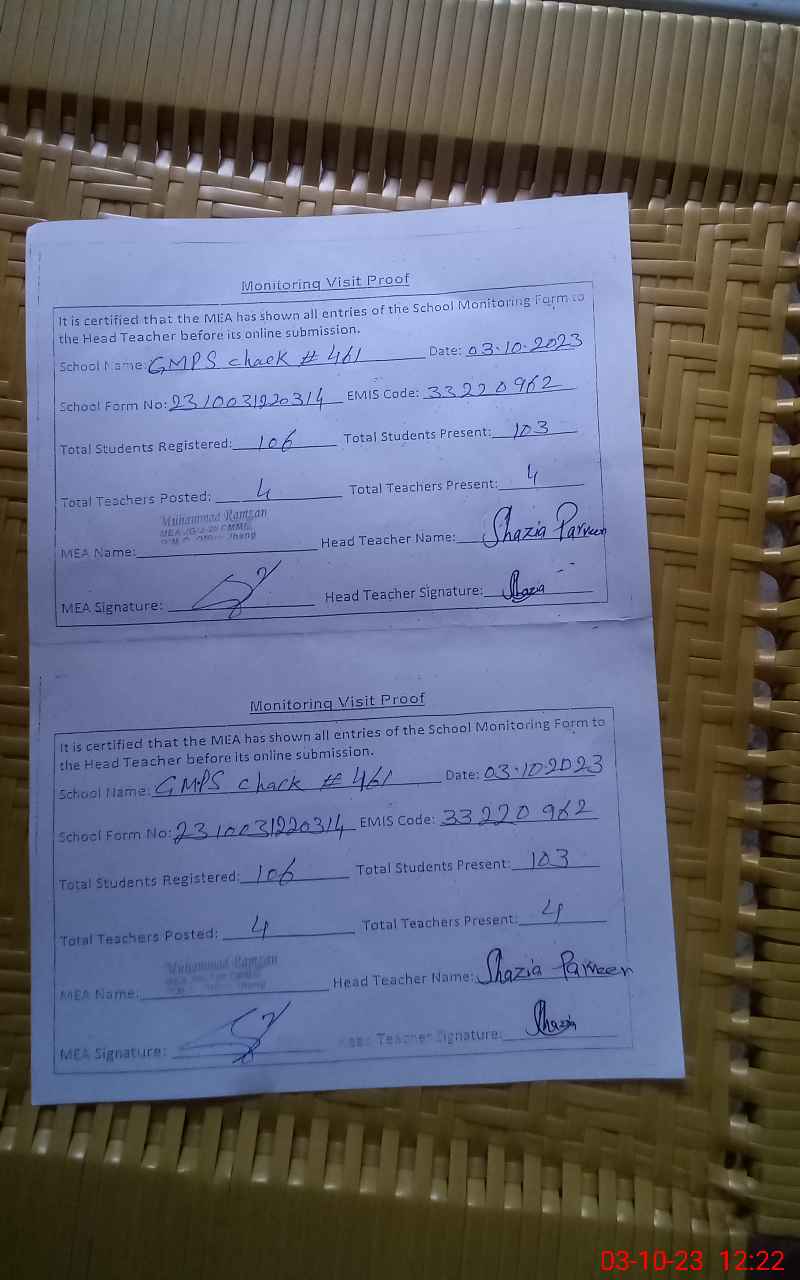 Monitoring Visit Proof
It is certified that the MEA has shown all entries of the School Monitoring Form to
the Head Teacher before its online submission.
School Name: GMPS chack # 461 Date: 03.10.2023
School Form No: 2310031220314 EMIS Code: 33220962
Total Students Registered: 106 Total Students Present: 103
Total Teachers Posted: 4 Total Teachers Present: 4
Muhammad Ramzan
MEA Name: Head Teacher Name: Shazia Parveen
MEA Signature: Head Teacher Signature: Shazia
Monitoring Visit Proof
It is certified that the MEA has shown all entries of the School Monitoring Form to
the Head Teacher before its online submission.
School Name: GMPS chack # 461 Date: 03.10.2023
School Form No: 2310031220314 EMIS Code: 33220962
Total Students Registered: 106 Total Students Present: 103
Total Teachers Posted: 4 Total Teachers Present: 4
Muhammad Ramzan
MEA Name: Head Teacher Name: Shazia Parveen
MEA Signature: Head Teacher Signature: Shazia
03-10-23 12:22